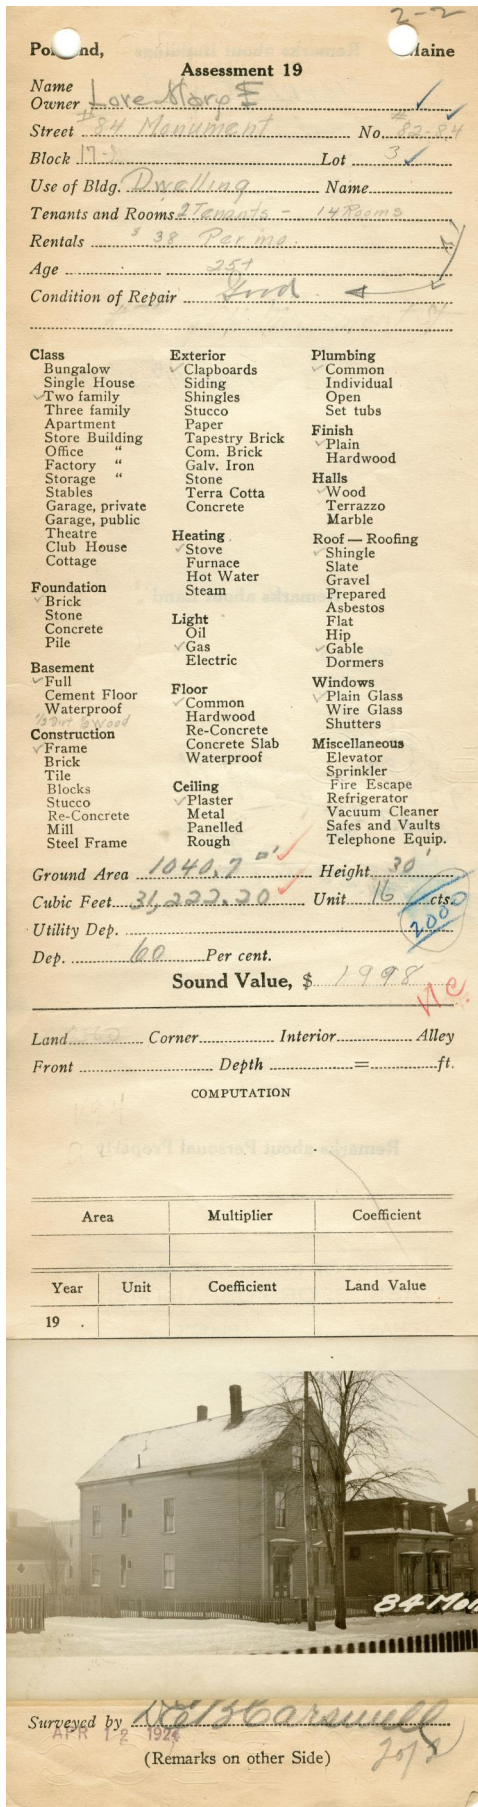 2-2
Portland, Maine
Assessment 19
Name
Owner Love Mary E
Street #84 Monument No. #82-84
Block 17-J Lot 3
Use of Bldg. Dwelling Name
Tenants and Rooms 2 Tenants - 14 Rooms
Rentals $38 Per mo.
Age 25+
Condition of Repair Good
Class
Bungalow
Single House
✓Two family
Three family
Apartment
Store Building
Office "
Factory "
Storage "
Stables
Garage, private
Garage, public
Theatre
Club House
Cottage
Foundation
✓Brick
Stone
Concrete
Pile
Basement
✓Full
Cement Floor
Waterproof
1/2 Dirt 1/2 Wood
Construction
✓Frame
Brick
Tile
Blocks
Stucco
Re-Concrete
Mill
Steel Frame
Exterior
✓Clapboards
Siding
Shingles
Stucco
Paper
Tapestry Brick
Com. Brick
Galv. Iron
Stone
Terra Cotta
Concrete
Heating
✓Stove
Furnace
Hot Water
Steam
Light
Oil
✓Gas
Electric
Floor
✓Common
Hardwood
Re-Concrete
Concrete Slab
Waterproof
Ceiling
✓Plaster
Metal
Panelled
Rough
Plumbing
✓Common
Individual
Open
Set tubs
Finish
✓Plain
Hardwood
Halls
✓Wood
Terrazzo
Marble
Roof — Roofing
✓Shingle
Slate
Gravel
Prepared
Asbestos
Flat
Hip
✓Gable
Dormers
Windows
✓Plain Glass
Wire Glass
Shutters
Miscellaneous
Elevator
Sprinkler
Fire Escape
Refrigerator
Vacuum Cleaner
Safes and Vaults
Telephone Equip.
Ground Area 1040.7 □' Height 30'
Cubic Feet 31,222.20 Unit 16 cts.
2000
Utility Dep.
Dep. 60 Per cent.
Sound Value, $ 1998
N.C.
Land Corner Interior Alley
Front Depth = ft.
COMPUTATION
Area Multiplier Coefficient
Year Unit Coefficient Land Value
19 .
84 Mon
Surveyed by Carswell
APR 12 1924
(Remarks on other Side)